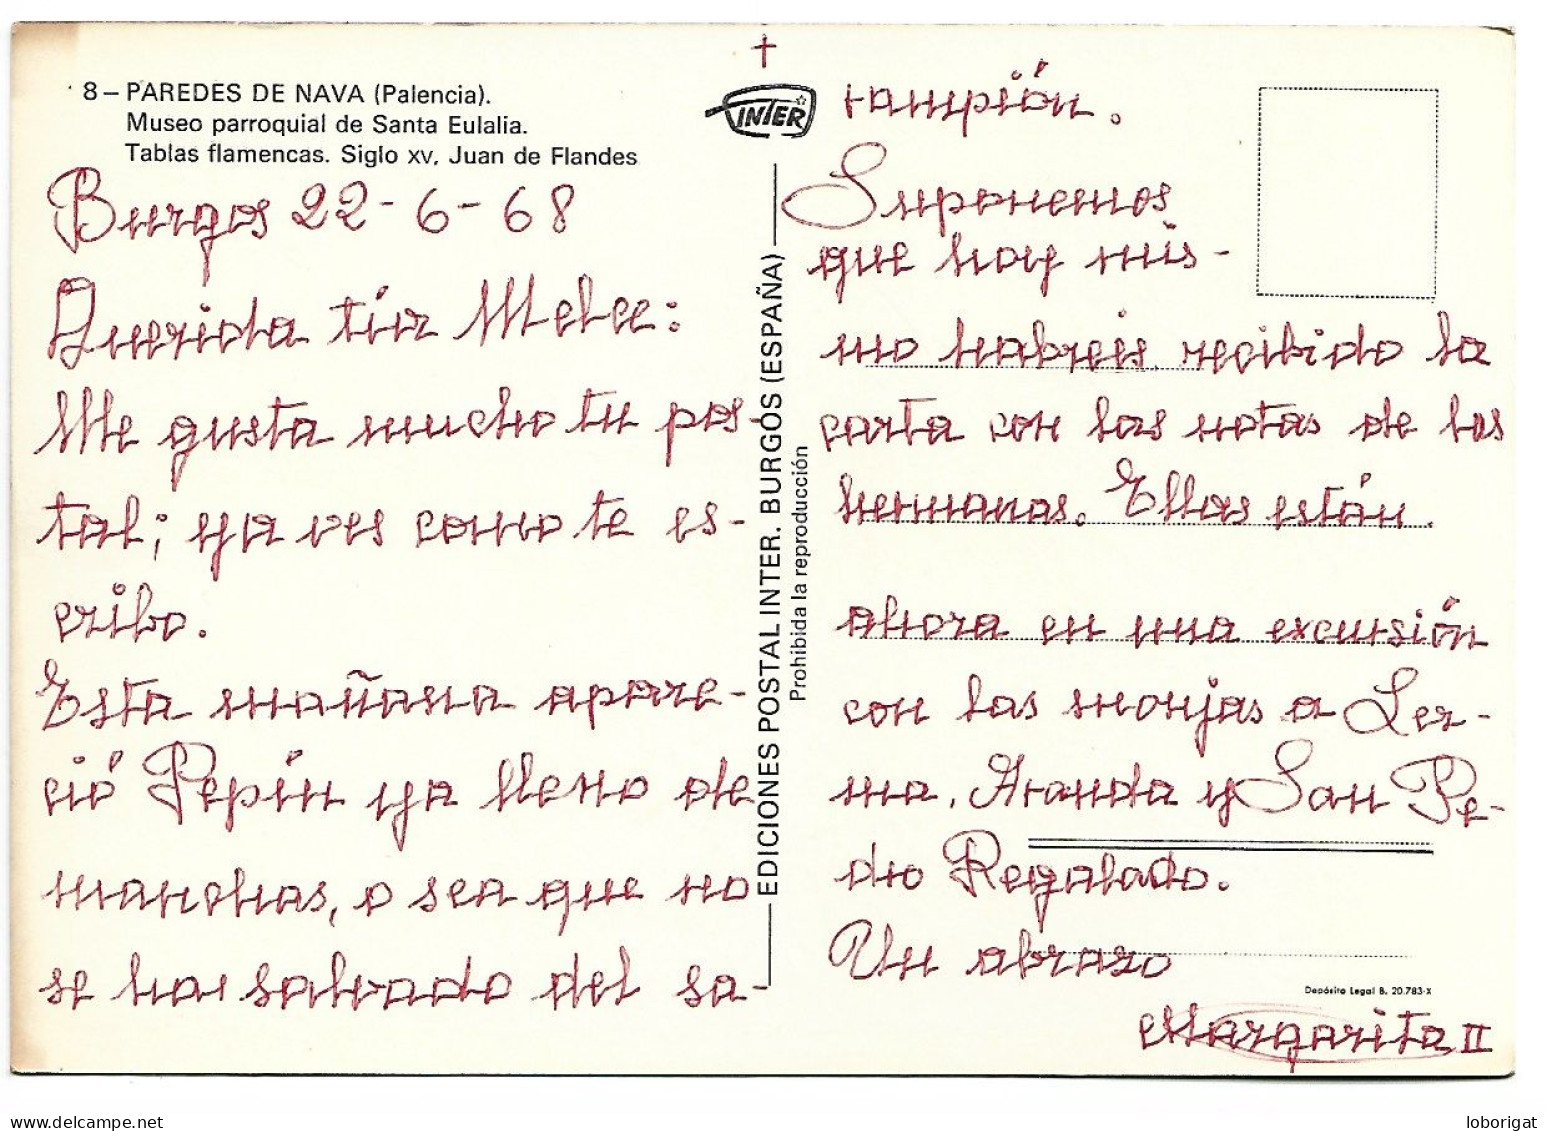 8 – PAREDES DE NAVA (Palencia).
Museo parroquial de Santa Eulalia.
Tablas flamencas. Siglo XV, Juan de Flandes
Burgos 22-6-68
Querida tía Mele:
Me gusta mucho tu pos-
tal; ya ves como te es-
cribo.
Esta mañana apare-
ció Pepín ya lleno de
manchas, o sea que no
se ha salvado del sa-
†
INTER
EDICIONES POSTAL INTER. BURGOS (ESPAÑA)
Prohibida la reproducción
rampión.
Suponemos
que hoy mis-
mo habreis recibido la
carta con las notas de las
hermanas. Ellas están
ahora en una excursión
con las monjas a Ler-
ma, Aranda y San Pe-
dro Regalado.
Un abrazo
Margarita II
Depósito Legal B. 20.783-X
delcampe.net
loborigat